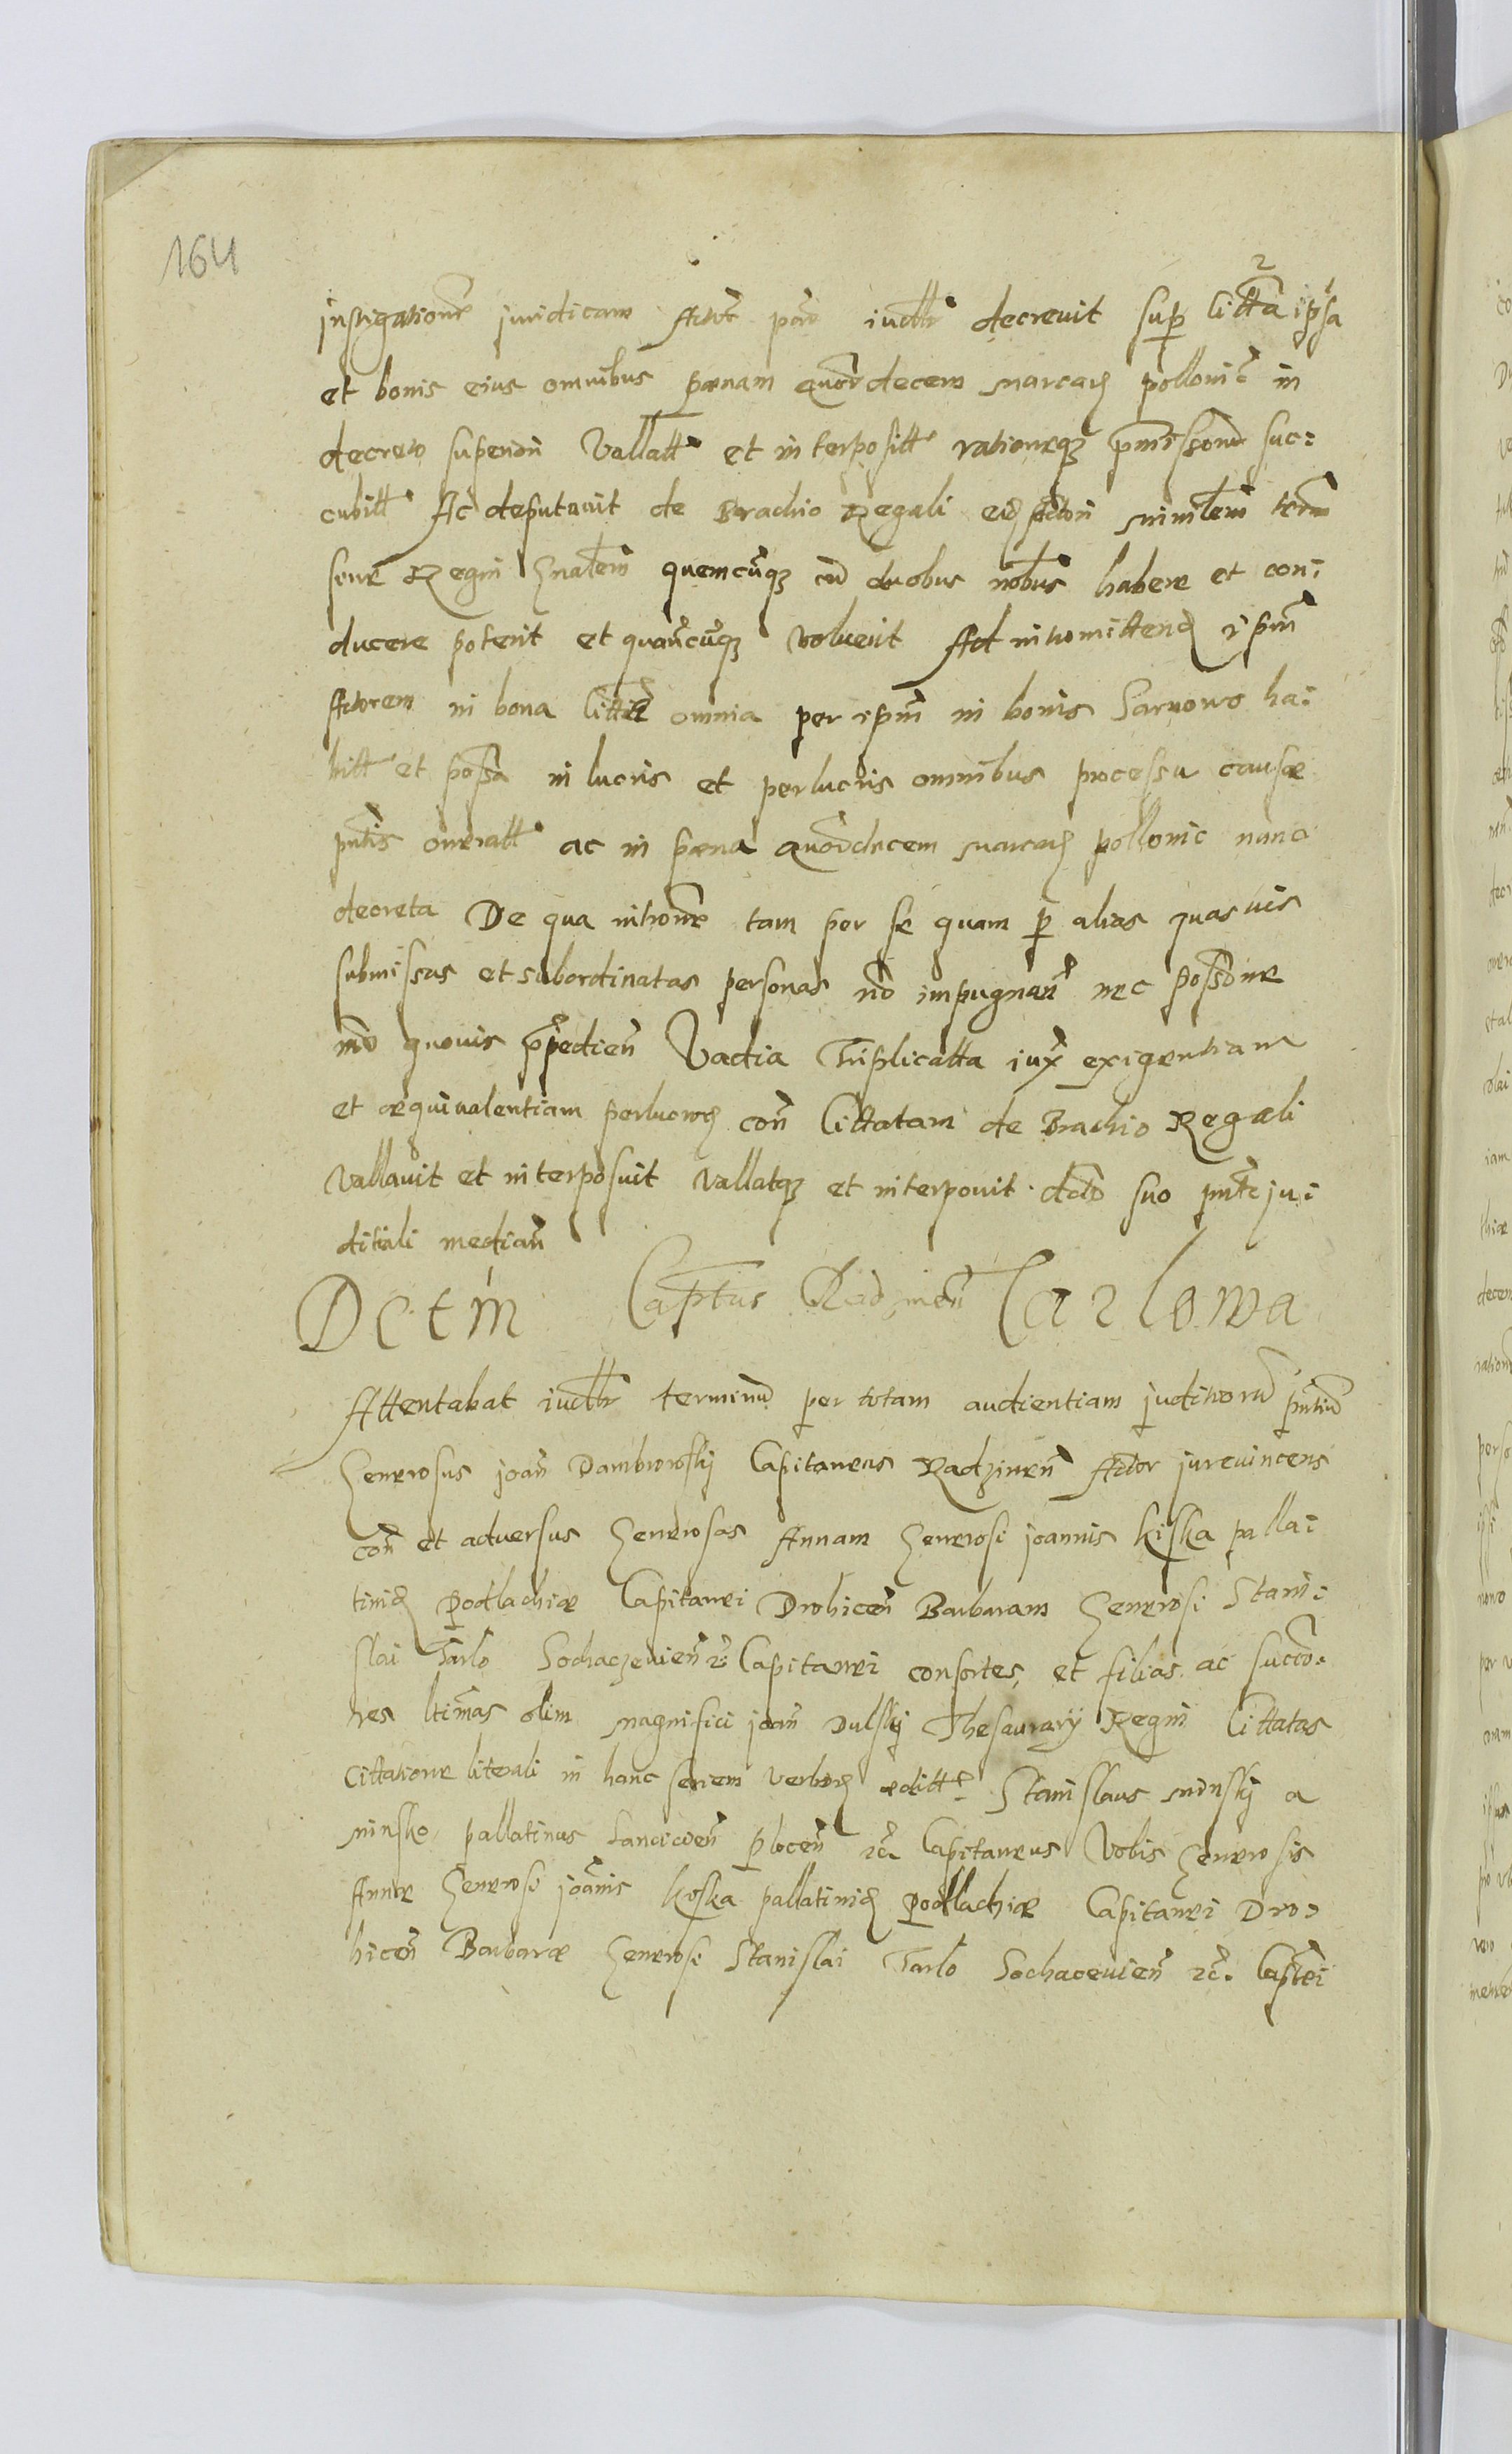 164
instigationē juridicam Actor̄ pār iudtr decrevit sup cittā ipsa
et bonis eius omnibus pœnam quordecem marcarꝫ polloniͨ in
decreto superiori Vallatt et interpositt rationeqꝫ pm̄issorū suc:
cubitt Ac deputavit de Brachio Regali eidꝫ Actori minr̄lem terr̄
siue Regni Gnālem quemcūqꝫ cū duobus nobus habere et con:
ducere poterit et quancūqꝫ voluerit Ad intromittendꝫ ipm̄
Actorem in bona citta omnia per ipm̄ in bonis Sarnowo ha:
bitt et possa in lucris et perlucris omnibus processu causæ
pn̄tis overatt ac in pœna quordecem marcarꝫ pollonic nunc
decreta De qua intrōne tam per se quam ꝑ alias quasuis
submissas et subordinatas personas nō impugnan̄ nec possōne
mō quovis p̄pedien̄ Vadia Triplicatta iux̄ exigentiam
et æquivalentiam perlucrorꝫ con̄ Cittatam de Brachio Regali
vallavit et interposuit vallatqꝫ et interponit dcto suo pn̄te ju:
ditiali median̄
Dctm̄ Captus Radzinen̄ Tarlowa
Attentabat iudtr terminū per totam audientiam juditiorū pn̄tiū
Generosus joan̄ Dambrowskj Capitaneus Radzinen̄ Actor jurevincens
con̄ et adversus Generosas Annam Generosi joannis kiska palla:
tinidꝫ Podlachiæ Capitanei Drohicen̄ Barbaram Generosi Stani:
slai Tarlo Sochaczeuien̄ ꝛc Capitanei consortes, et filias ac succō:
res ltimas olim magnifici joan̄ Dulskj Thesaurarij Regni Cittatas
Cittatione literali in hanc seriem verborꝫ editt: Stanislaus minskj a
minsko pallatinus Lancicien̄ plocen̄ ꝛc Capitaneus Vobis Generosis
Annæ Generosi joānis kiska pallatinidꝫ podlachiæ Capitanei Dro:
hicen̄ Barbaræ Generosi Stanislai Tarlo Sochaceuien̄ ꝛc. Captei